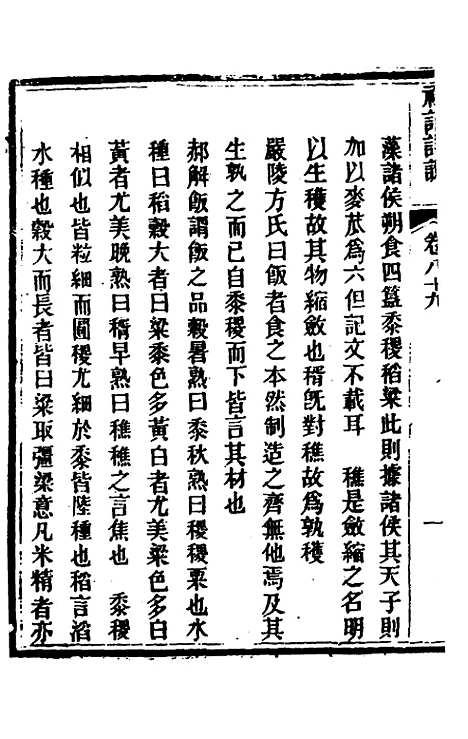 卷八十九
一
藻諸侯朔食四簋黍稷稻粱此則據諸侯其天子則
加以麥苽爲六但記文不載耳　穛是斂縮之名明
以生穫故其物縮斂也稰旣對穛故爲孰穫
嚴陵方氏曰飯者食之本然制造之齊無他焉及其
生孰之而已自黍稷而下皆言其材也
郝解飯謂飯之品穀暑熟曰黍秋熟曰稷稷粟也水
種曰稻穀大者曰粱黍色多黃白者尤美粱色多白
黃者尤美晚熟曰稰早熟曰穛穛之言焦也　黍稷
相似也皆粒細而圓稷尤細於黍皆陸種也稻言滔
水種也穀大而長者皆曰粱取彊梁意凡米精者亦